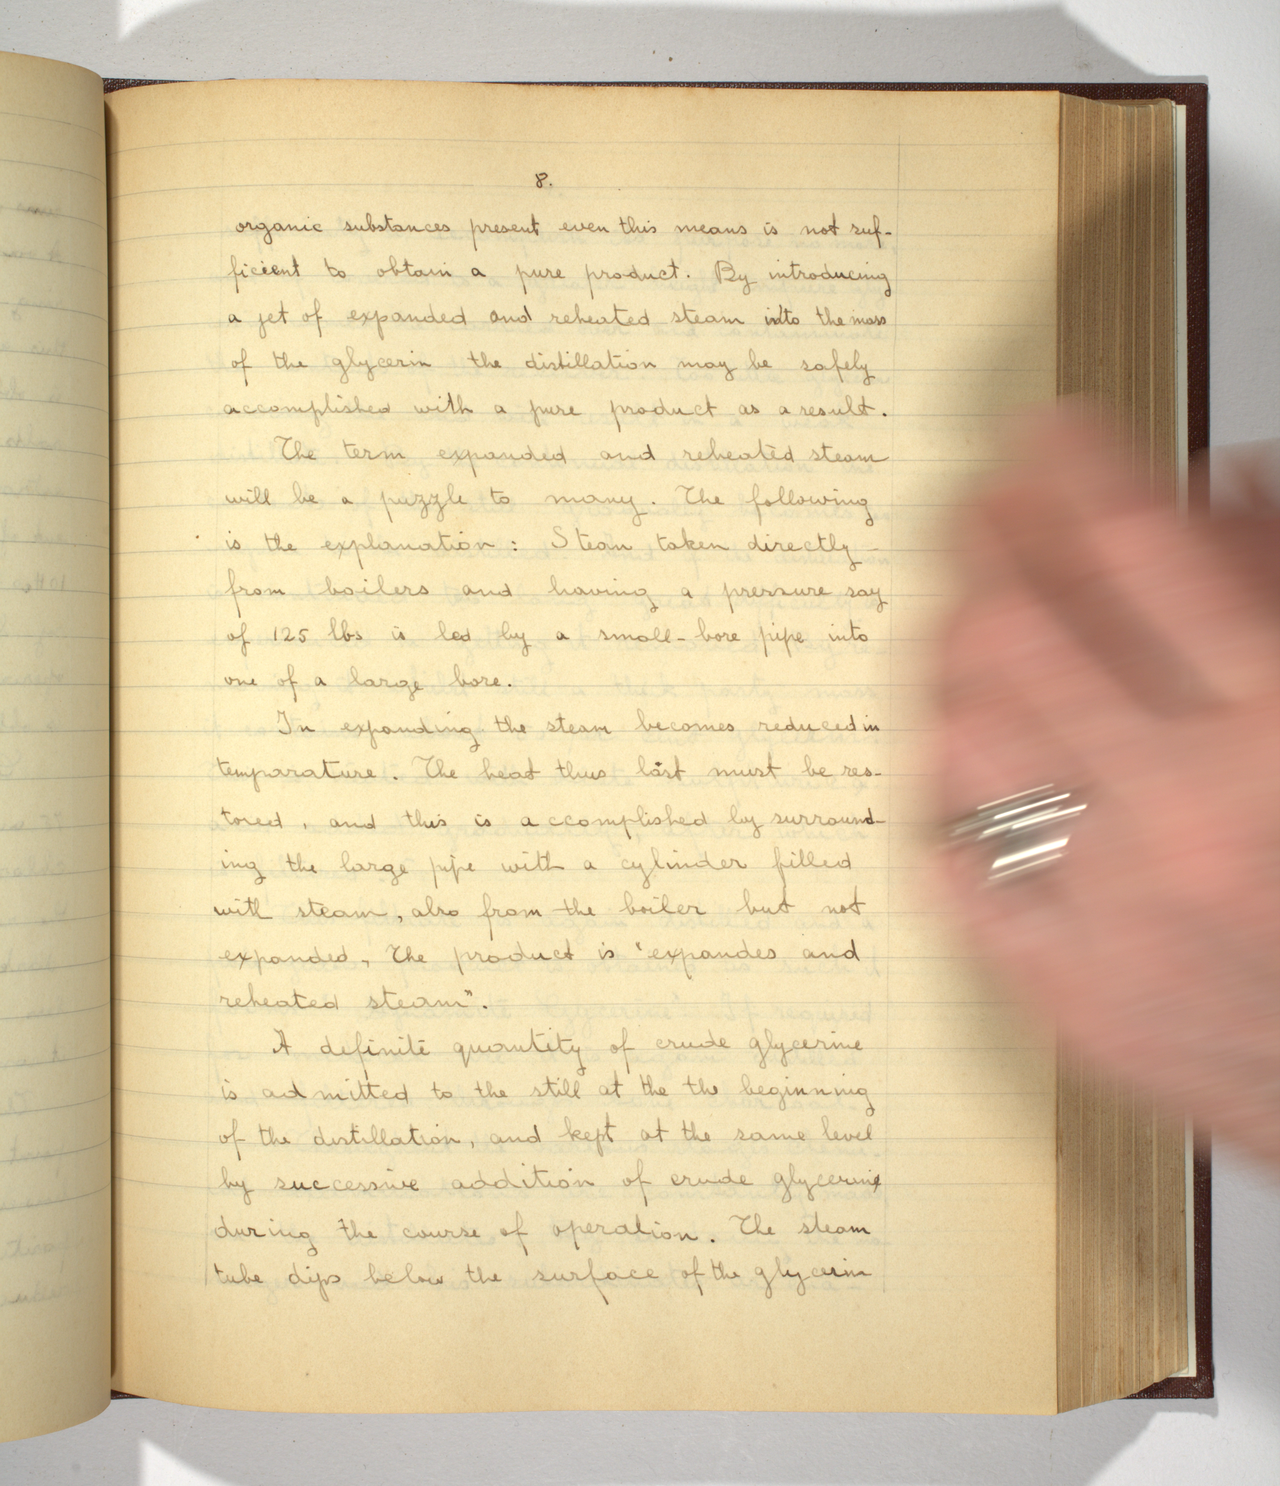 8.
organic substances present even this means is not suf-
ficient to obtain a pure product. By introducing
a jet of expanded and reheated steam into the mass
of the glycerin the distillation may be safely
accomplished with a pure product as a result.
The term expanded and reheated steam
will be a puzzle to many. The following
is the explanation: Steam taken directly
from boilers and having a pressure say
of 125 lbs is led by a small-bore pipe into
one of a large bore.
In expanding the steam becomes reduced in
temparature. The heat thus lost must be res-
tored, and this is accomplished by surround-
ing the large pipe with a cylinder filled
with steam, also from the boiler but not
expanded, The product is "expandes and
reheated steam".
A definite quantity of crude glycerine
is admitted to the still at the the beginning
of the distillation, and kept at the same level
by successive addition of crude glycerine
during the course of operation. The steam
tube dips below the surface of the glycerin